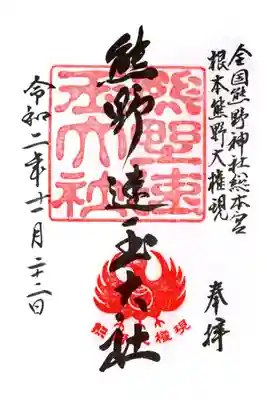 全国熊野神社総本宮
根本熊野大権現
奉拝
熊野速玉大社
令和二年十一月二十二日
熊野速玉大社
熊野権現